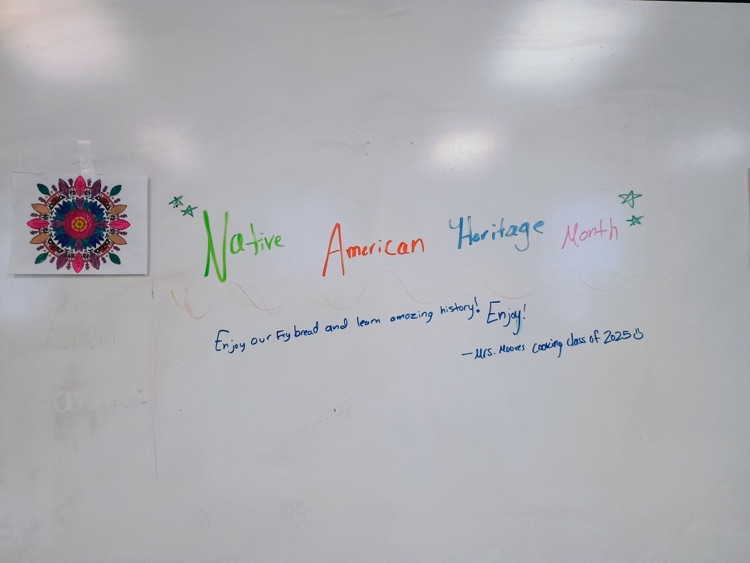 Native American Heritage Month
Enjoy our Frybread and learn amazing history! Enjoy!
- Mrs. Moores Cooking class of 2025